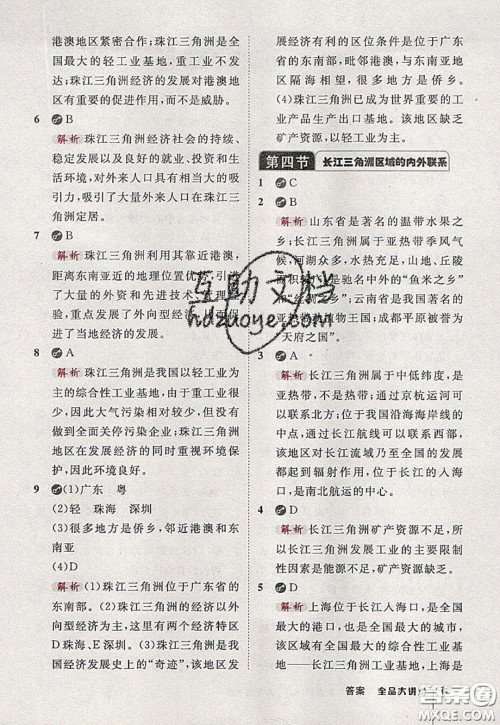 港澳地区紧密合作;珠江三角洲是
全国最大的轻工业基地,重工业不发
达;珠江三角洲经济的发展对港澳地
区有重要的促进作用,而不是威胁。
6 B
解析 珠江三角洲经济社会的持续、
稳定发展以及良好、宽松的就业环
境,对大量外来人口有相当强大的吸
引力,吸引了大量外来人口在珠江三
角洲定居。
7 B
解析 珠江三角洲利用其靠近港澳,
距离东南亚近的地理位置优势,引进
了大量的外资和先进技术、管理经
验,重点发展了外向型经济,从而促
进了当地经济的发展。
8 A
解析 珠江三角洲是我国以轻工业为
主的综合性工业基地,由于重工业很
少,因此大气污染相对较少,但不可
能全面关停污染型企业;珠江三角洲
地区在发展经济的同时重视环境治
理,因此环境良好。
9 (1)广东 粤
(2)轻 珠海 深圳
(3)很多地方是侨乡,邻近港澳和东
南亚
(4)D
解析 (1)珠江三角洲位于广东省的
东南部。(2)珠江三角洲的经济以外
向型经济为主,这里有两个经济特区
D珠海、E深圳。(3)珠江三角洲创造
经济发展史上的“奇迹”,该地区发
展经济有利的区位条件是位于广东
省的东南部,毗邻港澳,与东南亚地
区隔海相望,很多地方是侨乡。
(4)珠江三角洲已成为世界重要的工
业产品生产出口基地。该地区缺乏
矿产资源,以轻工业为主。
第四节 长江三角洲区域的内外联系
1 C
2 B
解析 山东省是著名的温带水果之
乡;长江三角洲属于亚热带季风气
候,河湖众多,水热充足,山地、丘陵
面积较小,是驰名中外的“鱼米之乡”
“丝绸之乡”;云南省是我国著名的
亚热带动植物王国;成都平原被誉为
“天府之国”。
3 A
解析 长江三角洲属于中低纬度,是
亚热带,不是热带;通过京杭运河可
以联系北方;位于我国沿海海岸线的
中点,通过长江航线可以横贯东西,
联系内地;该地区的经济发展对长江
地区在长江流域乃至全国的发展都
起到辐射作用,位于长江的入海口,
是南北航运的中心。
4 D
解析 长江三角洲矿产资源不足,所
以长江三角洲发展工业的主要限制
性因素是能源不足,矿产资源缺乏。
5 A
解析 上海位于长江入海口,是全国
最大的港口,也是全国最大的城市,
该区域有全国最大的综合性工业基
地——上海。该地区是全国综合性
答案 全品大讲
互助文档
hdzuoye.com
答案圈
MXQE.COM